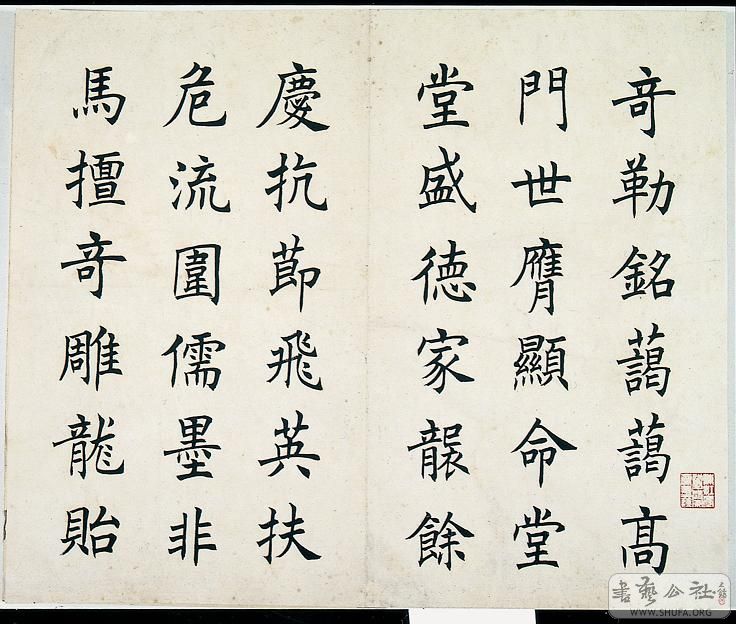 竒勒銘藹藹髙
門世膺顯命堂
堂盛徳家襲餘
慶抗節飛英扶
危流圍儒墨非
馬擅竒雕龍貽
書藝公社
WWW.SHUFA.ORG